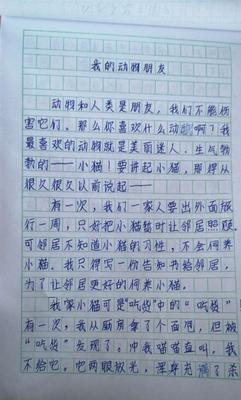 我的动物朋友
动物和人类是朋友，我们不能伤
害它们。那么你喜欢什么动物啊？我
最喜欢的动物就是美丽迷人、生气勃
勃的——小猫！要讲起小猫，那得从
很久很久以前说起——
有一次，我们一家人要出外面旅
行一周，只好把小猫暂时让邻居照顾。
可邻居不知道小猫的习性，不会饲养
小猫。我只得写一份告知书给邻居，
为了让邻居更好的饲养小猫。
我家小猫可是“吃货”中的“吃货”
有一次，我从厨房拿了个面包，但被
“吃货”发现了。冲我喵喵直叫，我
不给它。它两眼放光，浑身充满了杀